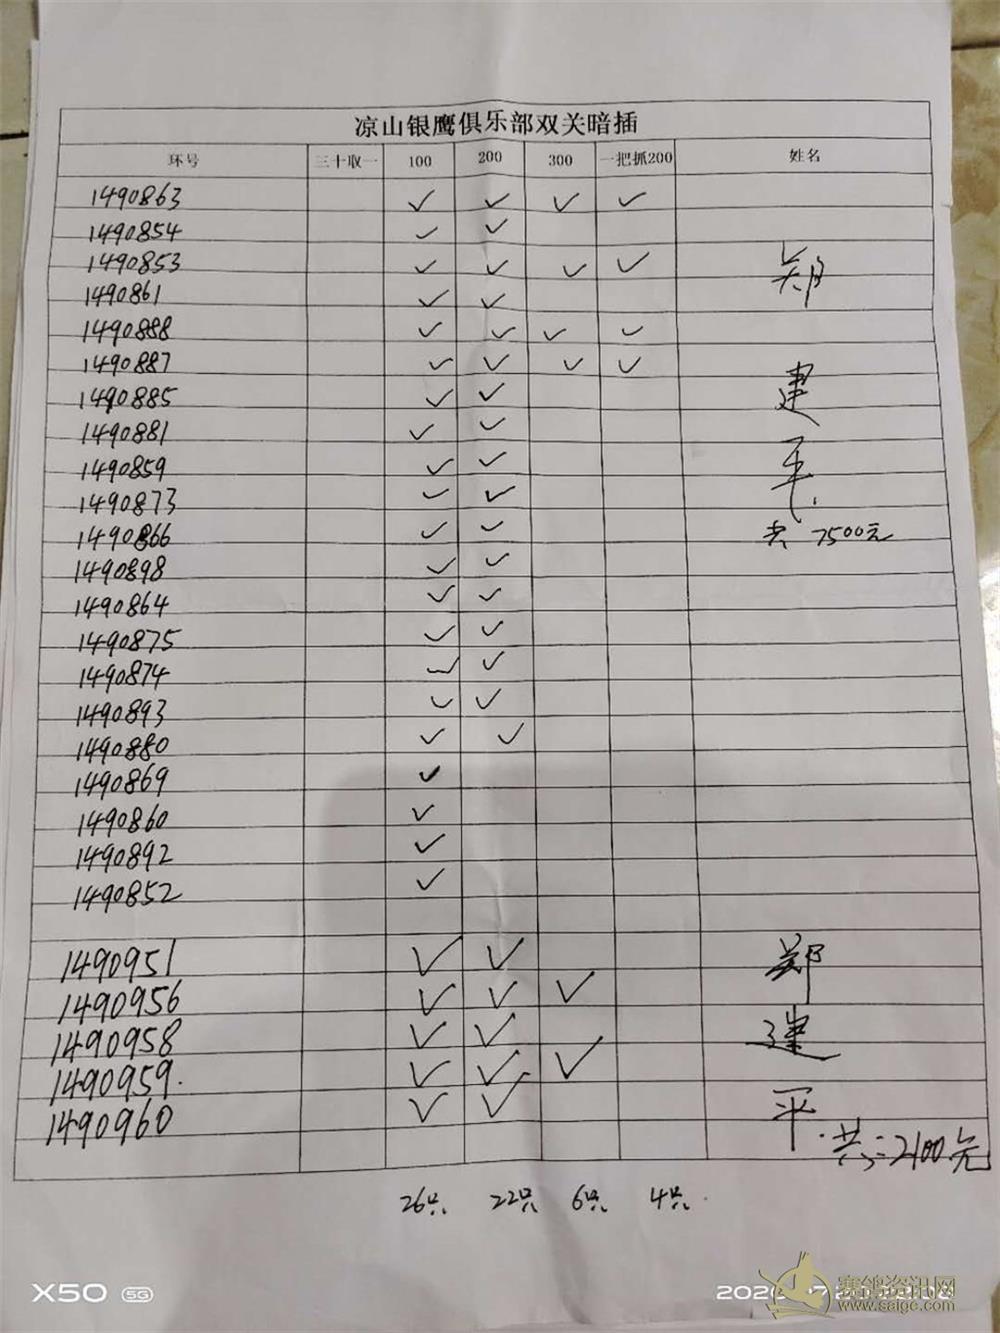 凉山银鹰俱乐部双关暗插
环号 三十取一 100 200 300 一把抓200 姓名
1490863 ✓ ✓ ✓ ✓
1490854 ✓ ✓
1490853 ✓ ✓ ✓ ✓ 郑
1490861 ✓ ✓
1490888 ✓ ✓ ✓ ✓
1490887 ✓ ✓ ✓ ✓ 建
1490885 ✓ ✓
1490881 ✓ ✓
1490859 ✓ ✓ 平
1490873 ✓ ✓
1490866 ✓ ✓ 共 7500元
1490898 ✓ ✓
1490864 ✓ ✓
1490875 ✓ ✓
1490874 ✓ ✓
1490893 ✓ ✓
1490880 ✓ ✓
1490869 ✓
1490860 ✓
1490892 ✓
1490852 ✓
1490951 ✓ ✓ 郑
1490956 ✓ ✓ ✓
1490958 ✓ ✓ 建
1490959. ✓ ✓ ✓
1490960 ✓ ✓ 平
共:=2100元
26只 22只 6只 4只.
X50 5G
赛鸽资讯网
www.saige.com